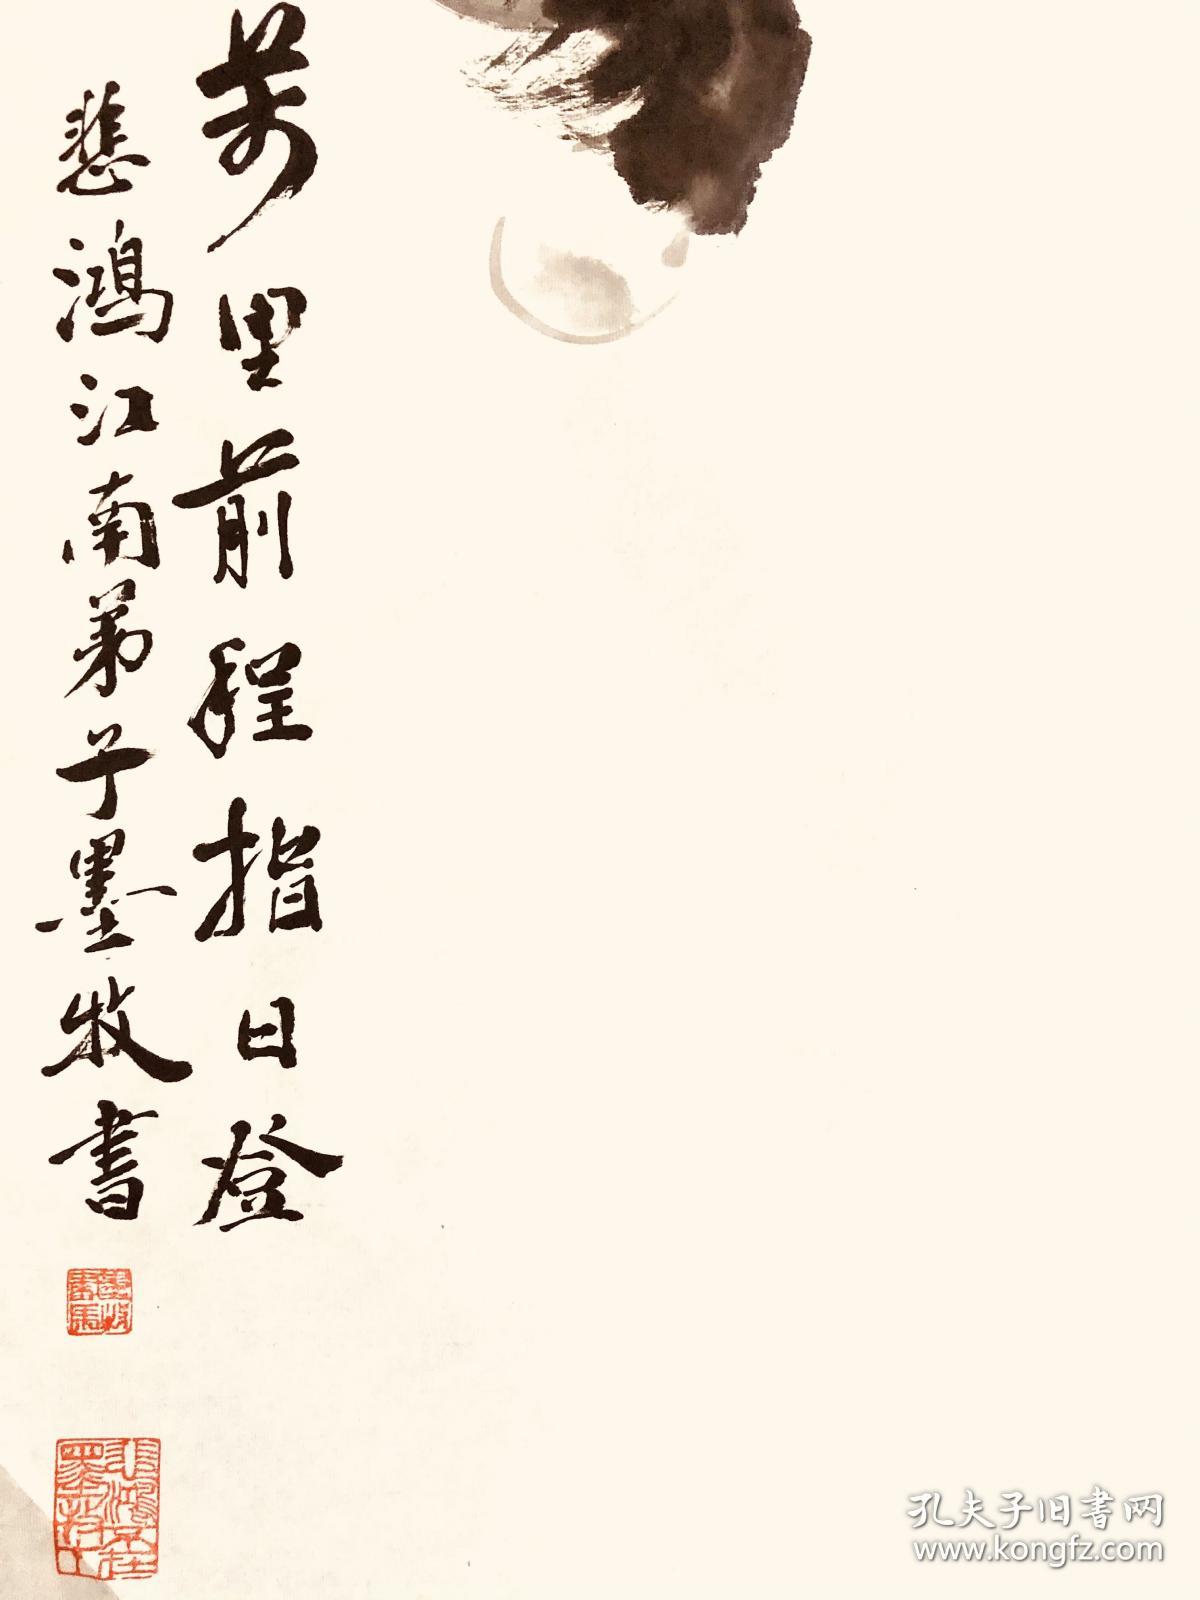 萬里前程指日登
悲鴻江南弟子墨牧書
孔夫子旧书网
www.kongfz.com